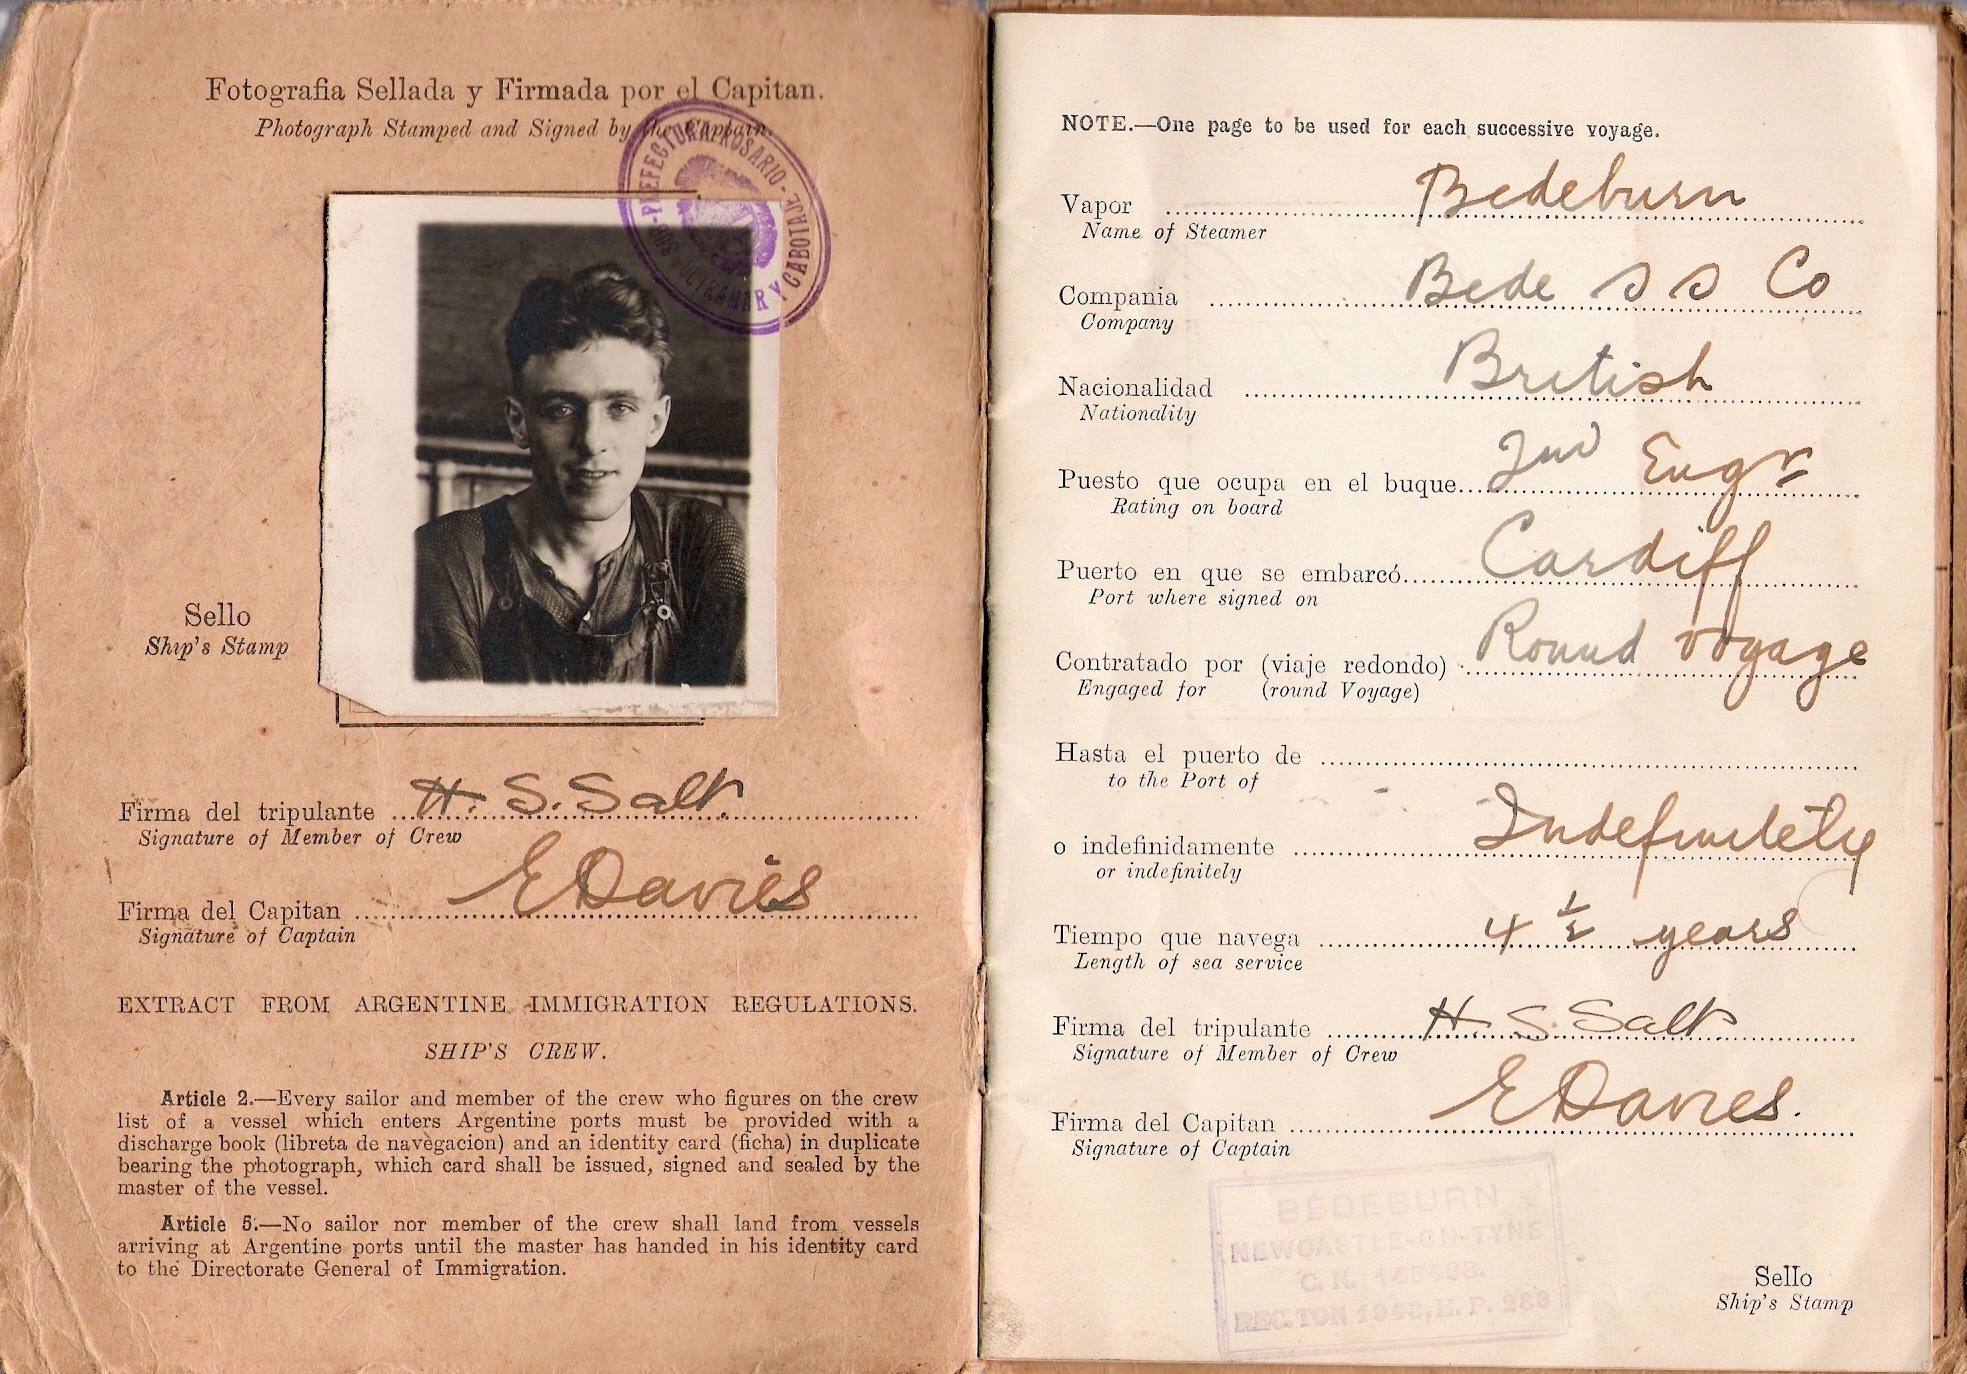 Fotografia Sellada y Firmada por el Capitan.
Photograph Stamped and Signed by the Captain.
PREFECTURA ROSARIO - ULTRAMAR Y CABOTAJE
Sello
Ship's Stamp
Firma del tripulante H. S. Salt
Signature of Member of Crew
Firma del Capitan E Davies
Signature of Captain
EXTRACT FROM ARGENTINE IMMIGRATION REGULATIONS.
SHIP'S CREW.
Article 2.—Every sailor and member of the crew who figures on the crew
list of a vessel which enters Argentine ports must be provided with a
discharge book (libreta de navegacion) and an identity card (ficha) in duplicate
bearing the photograph, which card shall be issued, signed and sealed by the
master of the vessel.
Article 5.—No sailor nor member of the crew shall land from vessels
arriving at Argentine ports until the master has handed in his identity card
to the Directorate General of Immigration.
NOTE.—One page to be used for each successive voyage.
Vapor Bedeburn
Name of Steamer
Compania Bede S S Co
Company
Nacionalidad British
Nationality
Puesto que ocupa en el buque 2nd Engr
Rating on board
Puerto en que se embarcó Cardiff
Port where signed on
Contratado por (viaje redondo) Round voyage
Engaged for (round Voyage)
Hasta el puerto de
to the Port of
o indefinidamente Indefinitely
or indefinitely
Tiempo que navega 4 1/2 years
Length of sea service
Firma del tripulante H. S. Salt
Signature of Member of Crew
Firma del Capitan E Davies.
Signature of Captain
BEDEBURN
NEWCASTLE-ON-TYNE
REC. TON 1943, H. P. 288
Sello
Ship's Stamp